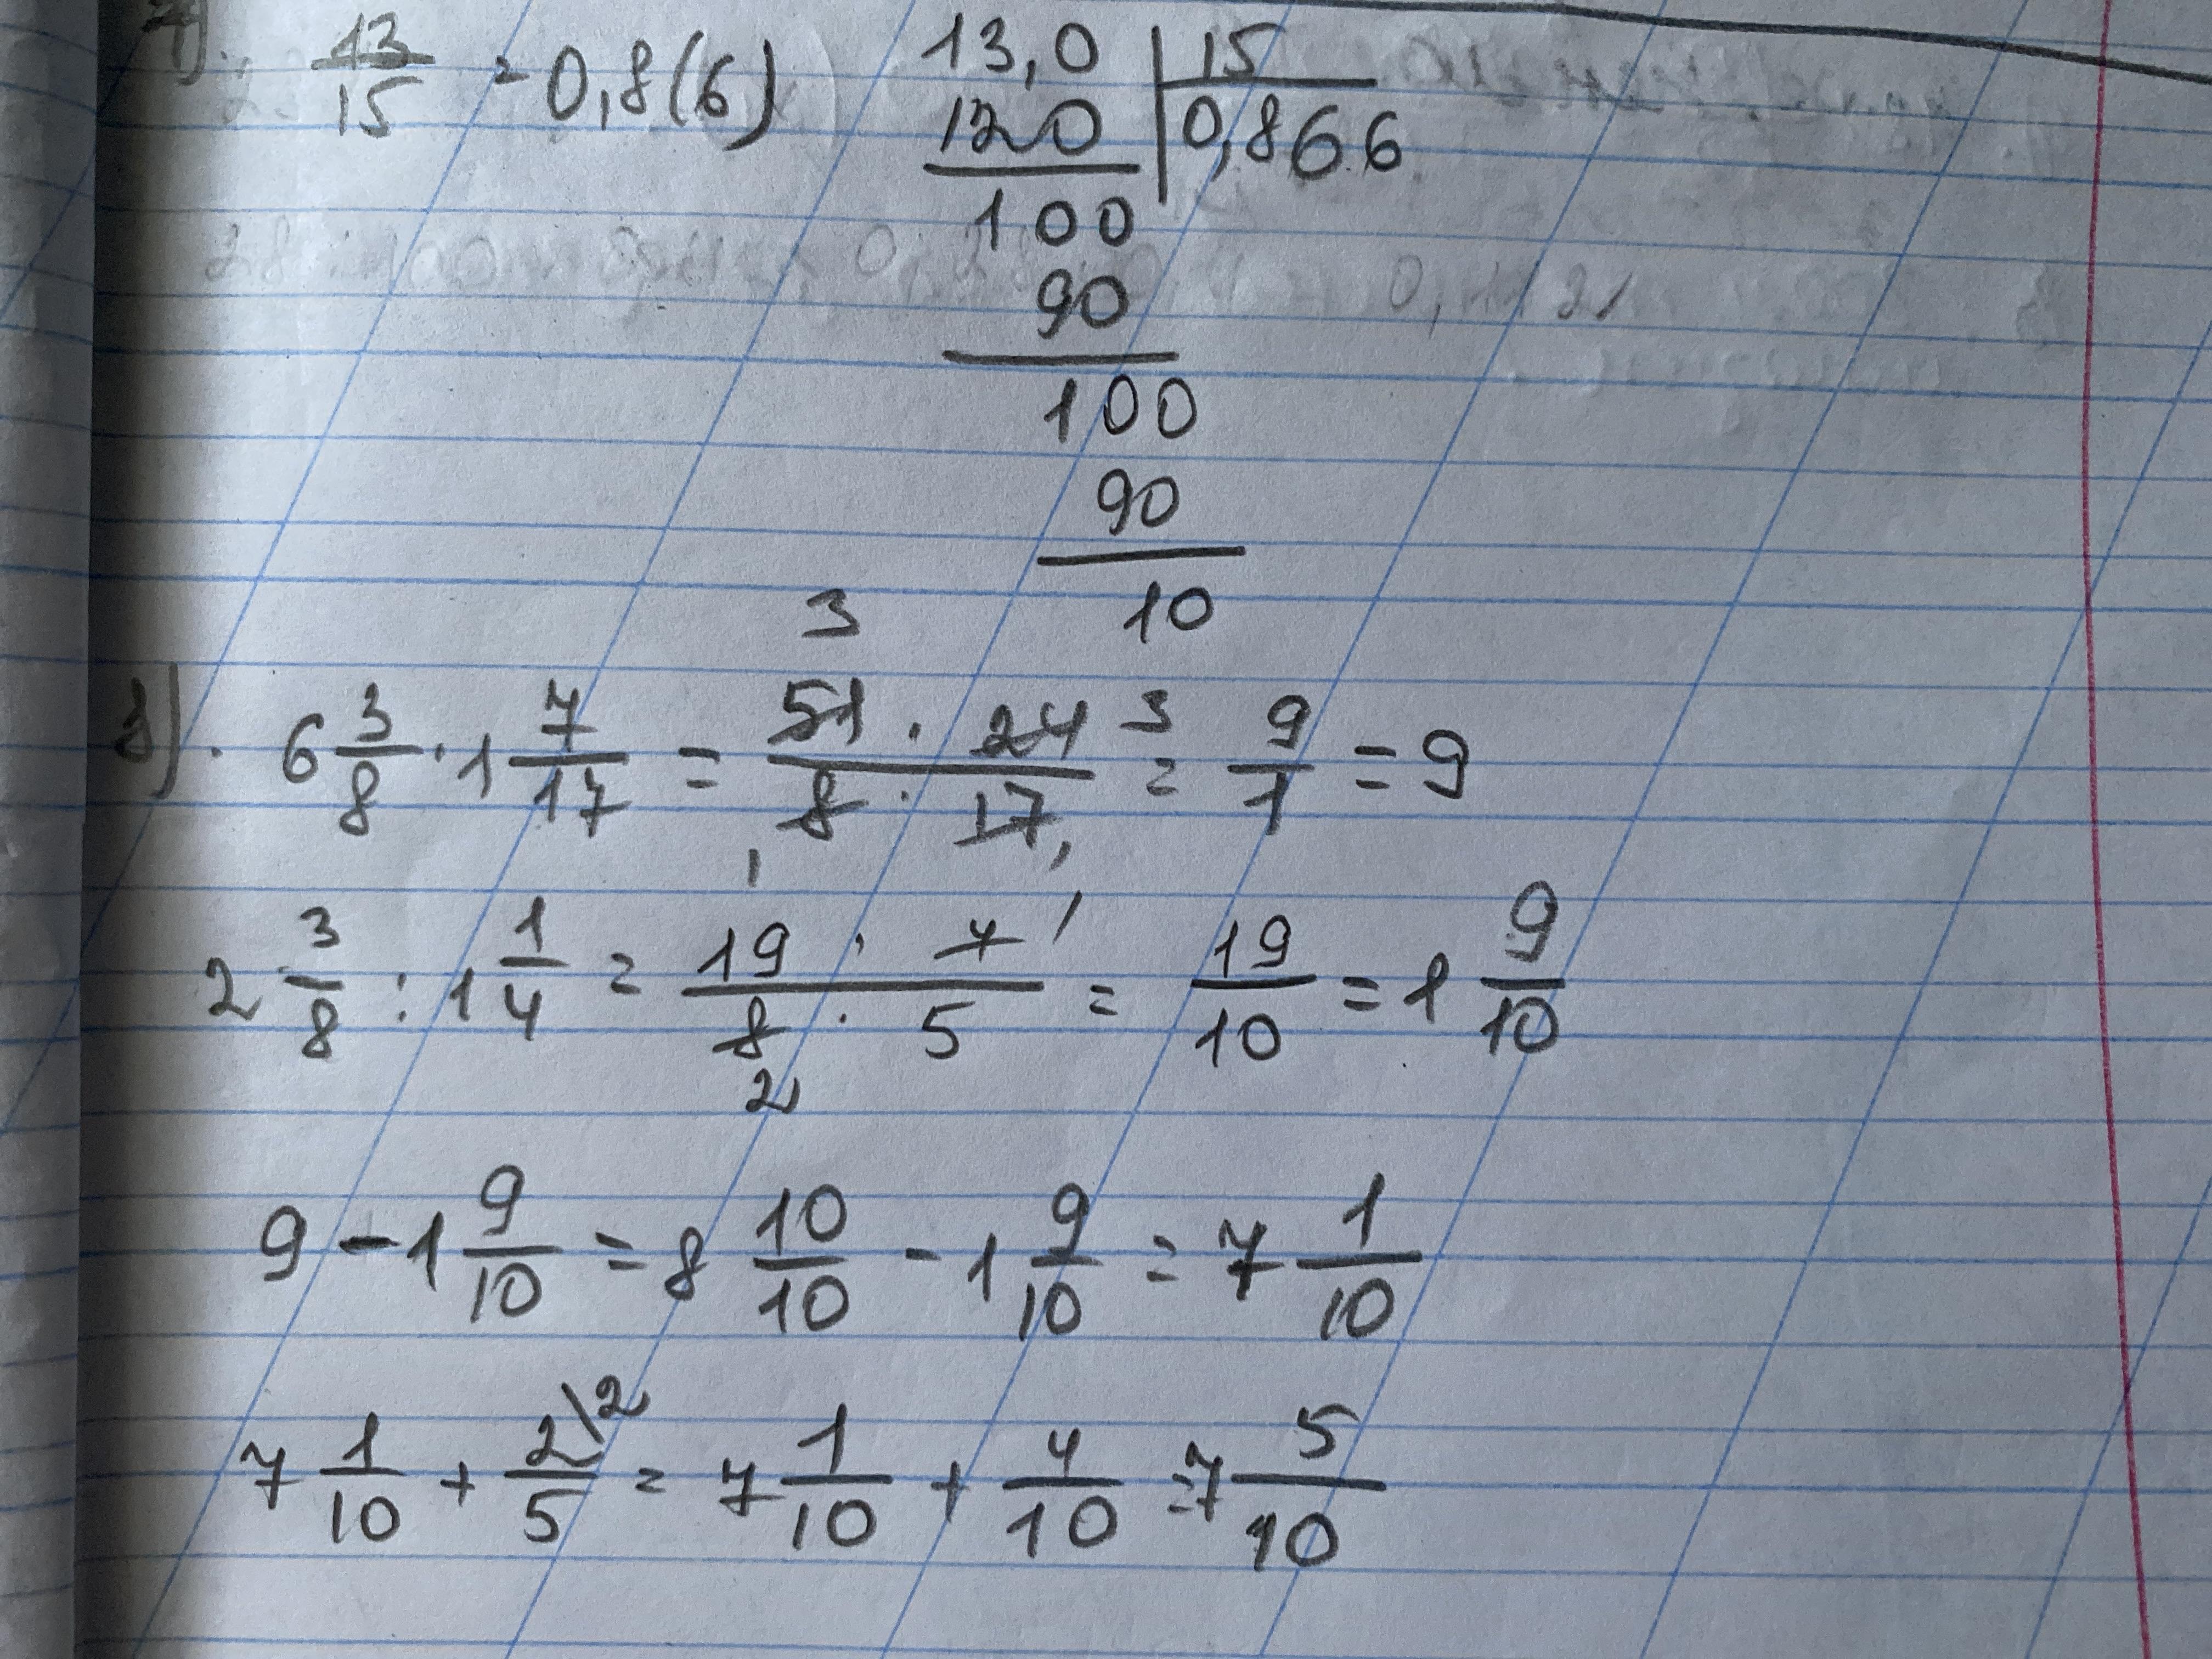 13/15 = 0,8(6)
13,0 | 15
120 | 0,866
100
90
100
90
10
3
6 3/8 · 1 7/17 = 51 · 24 / 8 · 17 = 9/1 = 9
3
1 1
2 3/8 : 1 1/4 = 19 · 4 / 8 · 5 = 19/10 = 1 9/10
1
2
9 - 1 9/10 = 8 10/10 - 1 9/10 = 7 1/10
7 1/10 + 2/5 \2 = 7 1/10 + 4/10 = 7 5/10